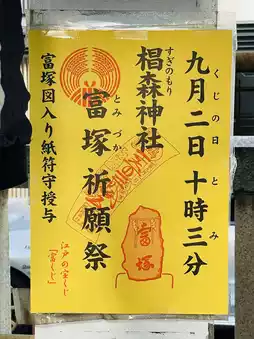 九月二日十時三分
くじの日
とみ
椙森神社
すぎのもり
富塚祈願祭
とみづか
富塚図入り紙符守授与
江戸の宝くじ
「富くじ」
富塚